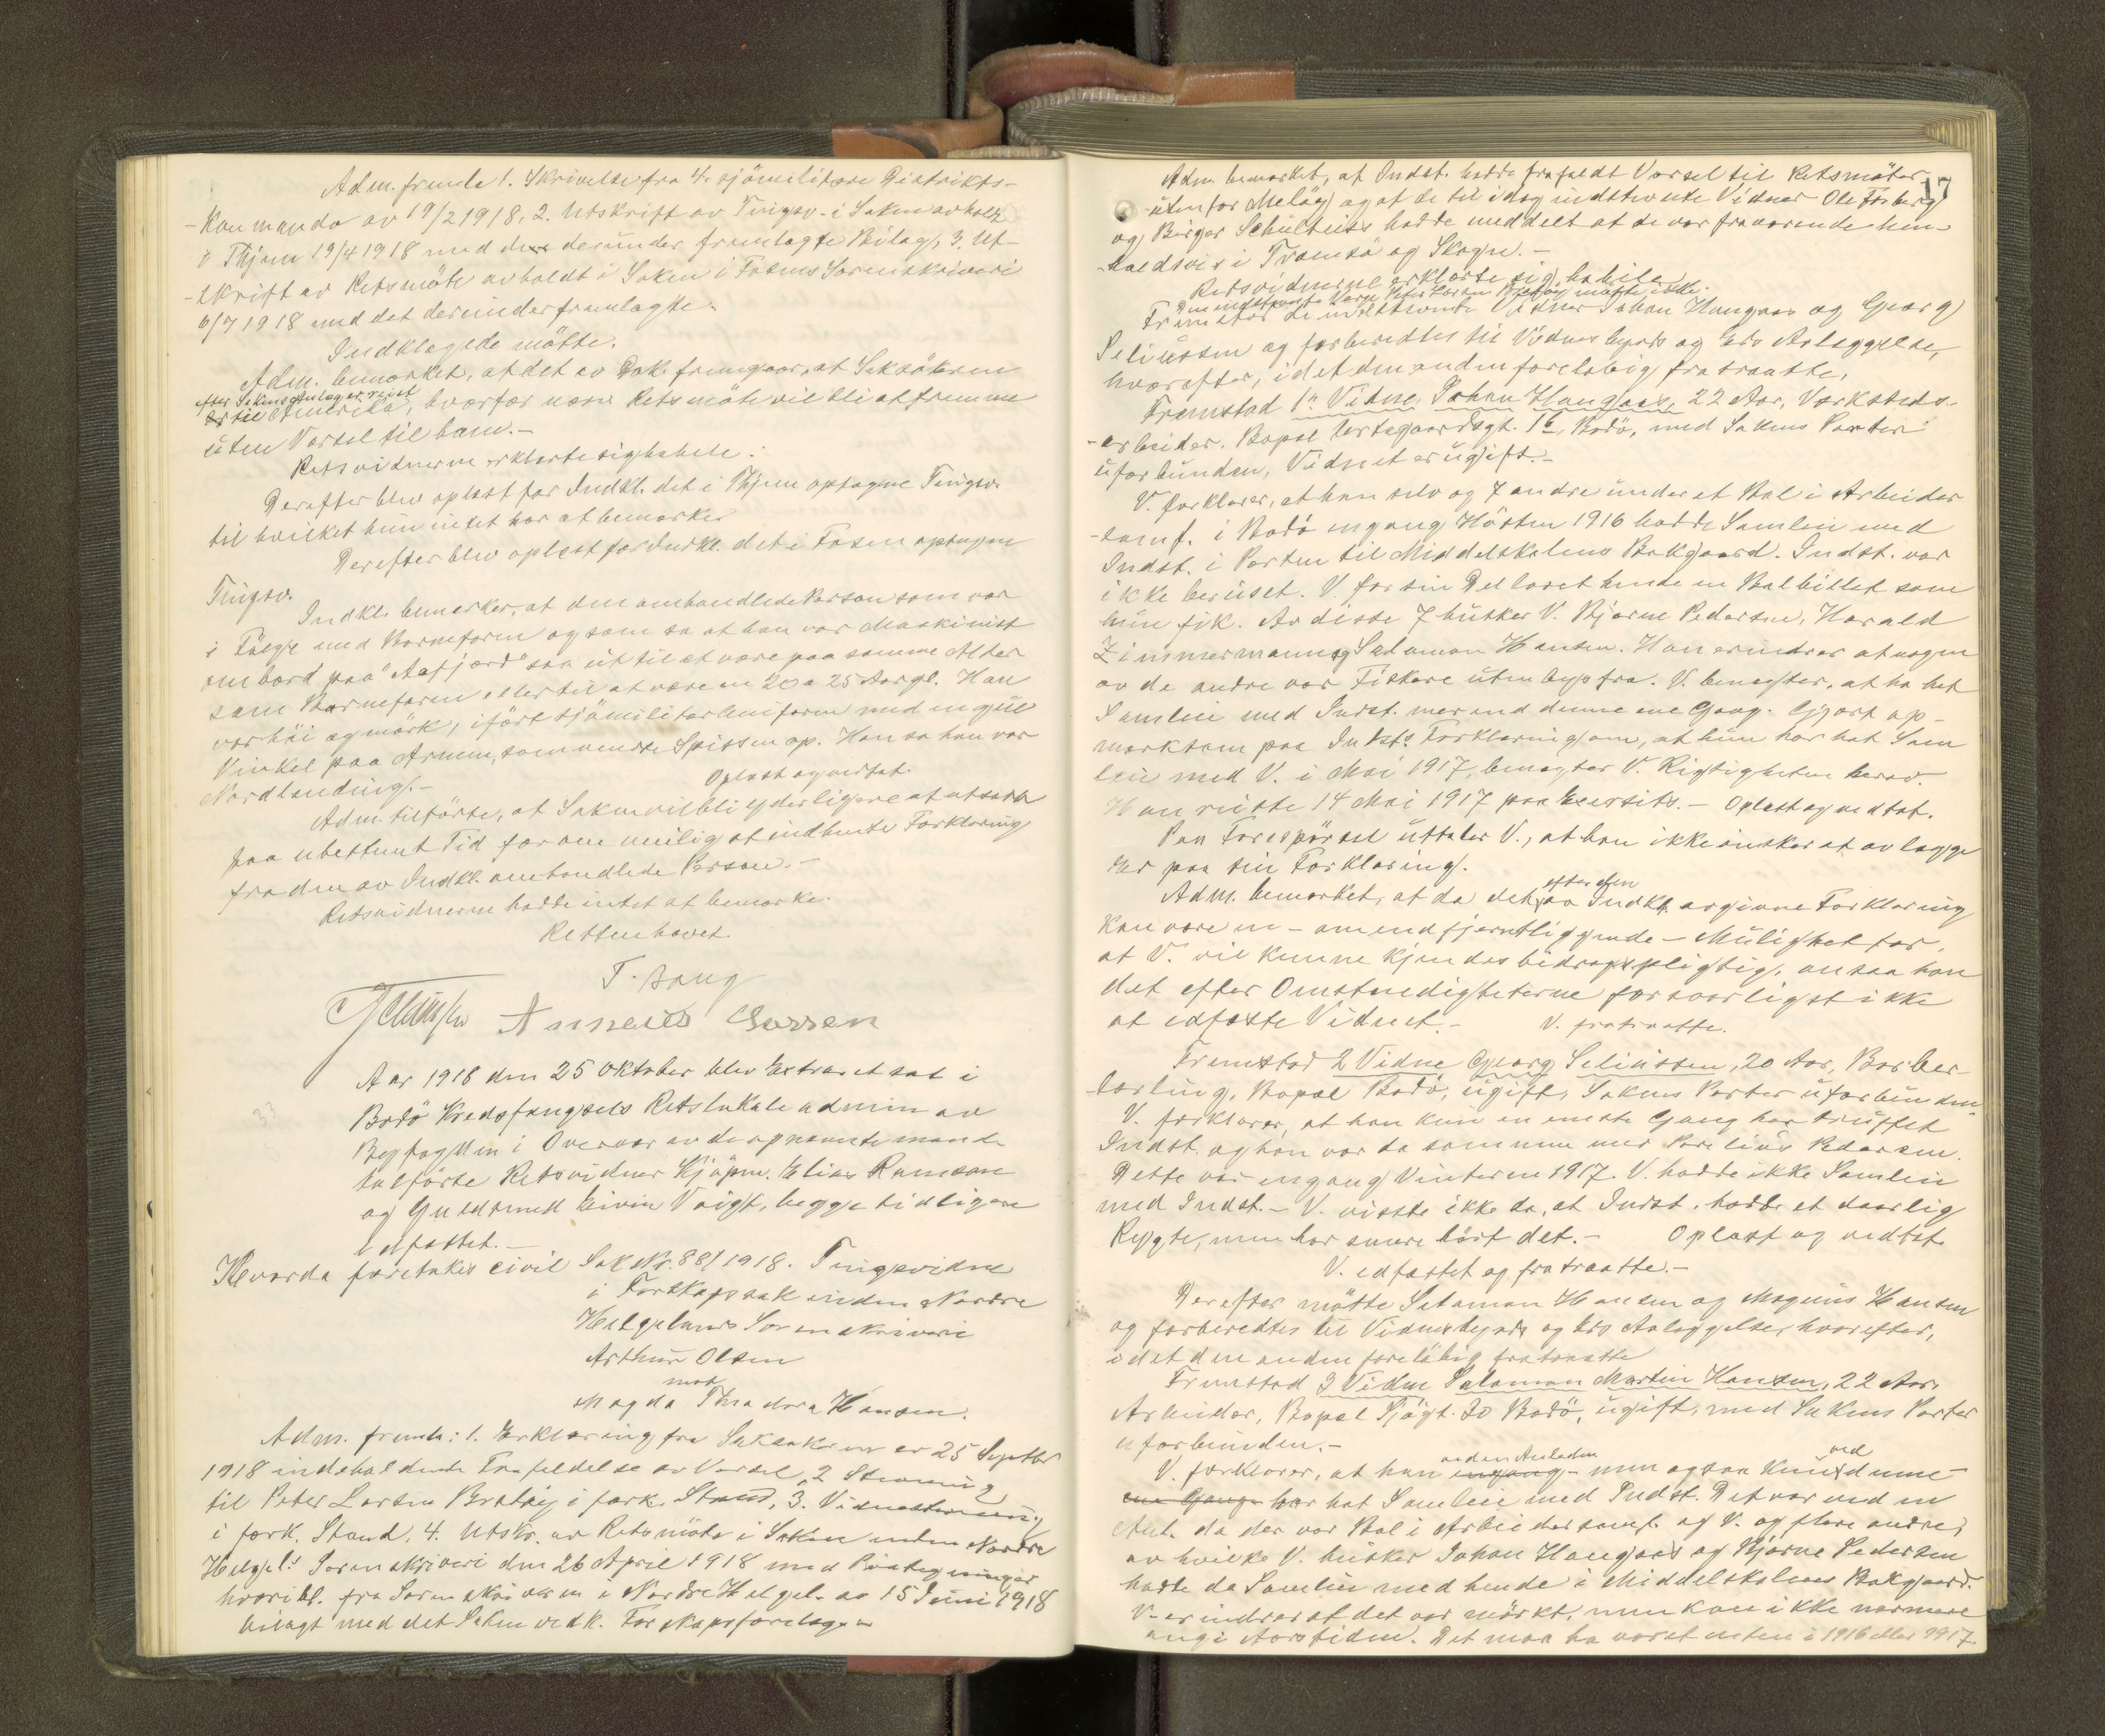 Adm. fremla 1. Skrivelse fra 4. sjömilitære Distrikts-
-kommando av 19/2 1918, 2. Utskrift av Tingsv. i Saken avholdt
i Thjem 19/4 1918 med de derunder fremlagte Bilag, 3. Ut-
-skrift av Retsmöte avholdt i Saken i Fosens Sorenskriveri
6/7 1918 med det derunder fremlagte.
Indklagede mötte.
Adm. bemerket, at det av Dok. fremgaar, at Saksökeren
efter Sakens Anlæg er reist
til Amerika, hvorfor nærv. Retsmöte vil bli at fremme
uten Varsel til ham.-
Retsvidnerne erklærte sig habile.
Derefter blev oplæst for Indkl. det i Thjem optagne Tingsv.
til hvilket hun intet har at bemerke.
Derefter blev oplæst for Indkl. det i Fosen optagne
Tingsv.
Indkl. bemerker, at den omhandlede Person som var
i Følge med Barnefaren og som sa at han var Maskinist
ombord paa "Aafjord" saa ut til at være paa samme Alder
som Barnefaren eller til at være en 20 a 25 Aar gl. Han
var höi og mörk, iført sjömilitær Uniform med en gul
Vinkel paa Armen, som vendte Spissen op. Han sa han var
Nordlænding.- Oplæst og vedtat.
Adm. tilförte, at Saken vil bli yderligere at utsætte
paa ubestemt Tid for om mulig at indhente Forklaring
fra den av Indkl. omhandlede Person.-
Retsvidnerne hadde intet at bemerke.
Retten hævet.
T. Bang
Annæus Garsen
Aar 1918 den 25 Oktober blev Extraret sat i
Bodö Kredsfængsels Retslokale admin. av
Byfogden i Overvær av de opnævnte mand-
talförte Retsvidner Kjöpm. Elias Ramsøe
og Guldsmed Eivin Voigt, begge tidligere
edfæstet.-
Hvorda foretokes civil Sak Nr. 88/1918. Tingsvidne
i Farskapssak inden Nordre
Helgelands Sorenskriveri
Arthur Olsen
mot
Magda Theodora Hansen.
Adm. fremla: 1. Erklæring fra Saksökeren av 25 Septbr
1918 indeholdende Frafaldelse av Varsel, 2 Stevning
til Peter Larsen Bratöy i fork. Stand, 3. Vidnestevning
i fork. Stand, 4. Utskr. av Retsmöte i Saken inden Nordre
Helgel.s Sorenskriveri den 26 April 1918 med Paategninger
hvoribl. fra Sorenskriveren i Nordre Helgel. av 15 Juni 1918
bilagt med det Saken vedk. Farskapsforelæg.-
17
Adm. bemerket, at Indst. hadde frafaldt Varsel til Retsmöter
utenfor Melöy og at de til idag indstevnte Vidner Ole Forberg
og Birger Schultheiss hadde meddelt at de var fraværende hen-
-holdsvis i Tromsö og Skogn.-
Retsvidnerne erklærte sig habile.
Den indstevnte Værge Peter Larsen Bratöy mötte ikke.
Fremstod de indstevnte Vidner Johan Haugaas og Georg
Seliussen og forberedtes til Vidnesbyrds og Eds Avlæggelse,
hvorefter, idet den anden foreløbig fratraatte,
Fremstod 1ste Vidne Johan Haugaas, 22 Aar, Verksteds-
-arbeider. Bopæl Urtegaardsgt. 16, Bodö, med Sakens Parter
uforbunden, Vidnet er ugift.-
V. forklarer, at han selv og 7 andre under et Bal i Arbeider-
-samf. i Bodö engang Hösten 1916 hadde Samleie med
Indst. i Porten til Middelskolens Bakgaard. Indst. var
ikke beruset. V. for sin Del lovet hende en Balbillet som
hun fik. Av disse 7 husker V. Bjarne Pedersen, Harald
Zimmermann og Salamon Hansen. Han erindrer at nogen
av de andre var Fiskere utenbys fra. V. benegter, at ha hat
Samleie med Indst. mer end denne ene Gang. Gjort op-
merksom paa Indst.s Forklaring om, at hun har hat Sam
leie med V. i Mai 1917, benegter V. Rigtigheten herav.-
Han reiste 14 Mai 1917 paa Exersits.- Oplæst og vedtat.
Paa Forespörsel uttaler V., at han ikke önsker at avlægge
Ed paa sin Forklaring.
Adm. bemerket, at da det efter den av Indkl. avgivne Forklaring
kan være en - om end fjerntliggende - Mulighet for,
at V. vil kunne kjendes bidragspligtig, ansaa han
det efter Omstendigheterne forsvarligst ikke
at edfæste Vidnet.- V. fratraatte.
Fremstod 2 Vidne Georg Seliussen, 20 Aar, Barber-
lærling, Bopæl Bodö, ugift, Sakens Parter uforbunden
V. forklarer, at han kun en eneste Gang har truffet
Indst. og han var da sammen med Parelius Pedersen.
Dette var engang Vinteren 1917. V. hadde ikke Samleie
med Indst.- V. visste ikke da, at Indst. hadde et daarlig
Rygte, men har senere hört det.- Oplæst og vedtat.
V. edfæstet og fratraatte.-
Derefter mötte Salamon Hansen og Magnus Hansen
og forberedtes til Vidnesbyrds og Eds Avlæggelse, hvorefter,
idet den anden foreløbig fratraatte
Fremstod 3 Vidne Salamon Martin Hansen, 22 Aar,
Arbeider, Bopæl Sjögt. 30 Bodö, ugift, med Sakens Parter
uforbunden.-
V. forklarer, at han engang - ved en Anledn. men ogsaa kun ved denne -
ene Gang har hat Samleie med Indst. Det var ved en
Anl. da der var Bal i Arbeidersamf. og V. og flere andre,
av hvilke V. husker Johan Haugaas og Bjarne Pedersen
hadde da Samleie med hende i Middelskolens Bakgaard.
V. erindrer at det var mörkt, men kan ikke nærmere
angi Aarstiden. Det maa ha været enten i 1916 eller 1917.